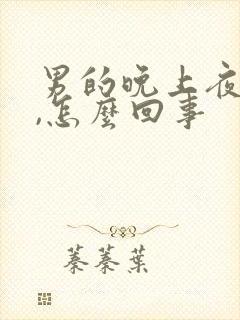 男的晚上夜
,怎麼回事
蓁蓁葉